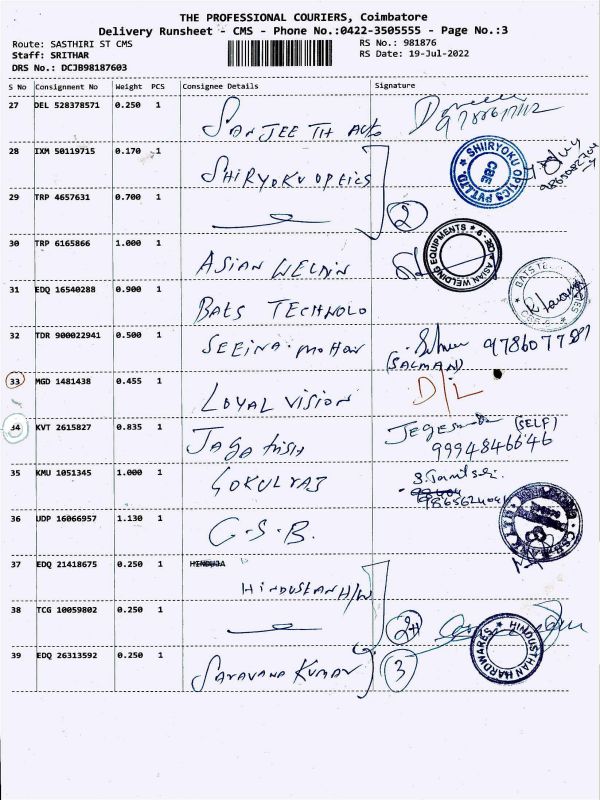 THE PROFESSIONAL COURIERS, Coimbatore
Delivery Runsheet - CMS - Phone No.:0422-3505555 - Page No.:3
Route: SASTHIRI ST CMS
RS No.: 981876
Staff: SRITHAR
RS Date: 19-Jul-2022
DRS No.: DCJB98187603
S No Consignment No Weight PCS Consignee Details Signature
27 DEL 528378571 0.250 1
SANJEETH Auto
28 IXM 50119715 0.170 1
SHIRYOKU OPTICS
SHIIRYOKU OPTICS PVT.LTD. CBE
29 TRP 4657631 0.700 1
2
30 TRP 6165866 1.000 1
ASIAN WELDIN
ASIAN WELDING EQUIPMENTS
31 EDQ 16540288 0.900 1
BATS TECHNOLO
32 TDR 900022941 0.500 1
SEEINA MOHAN
(SALMAN)
33 MGD 1481438 0.455 1
LOYAL VISION
D/L
34 KVT 2615827 0.835 1
JAGATHISH
(SELF)
9994846646
35 KMU 1051345 1.000 1
GOKULRAJ
36 UDP 16066957 1.130 1
C.S.B.
37 EDQ 21418675 0.250 1 HINDUJA
HINDUSTAN H/W
38 TCG 10059802 0.250 1
HINDUSTHAN HARDWARES
39 EDQ 26313592 0.250 1
SARAVANA KUMAR
3